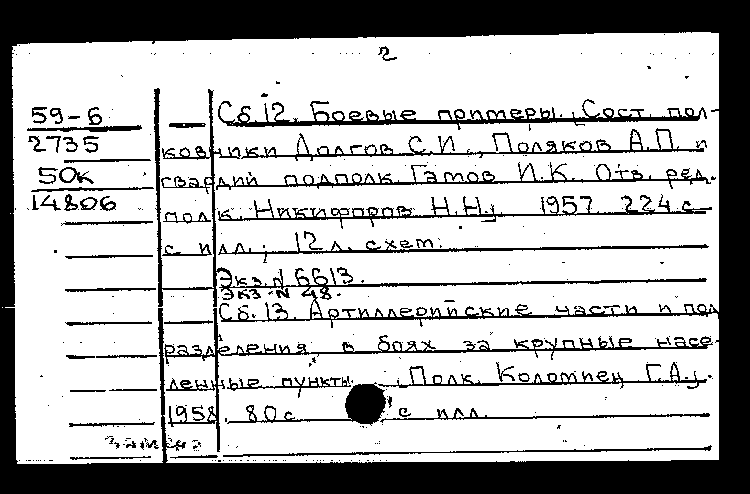 2
59-6 — Сб. 12. Боевые примеры. [Сост. пол-
2735 ковники Долгов С.И., Поляков А.П. и
50к гвардии подполк. Гамов И.К. Отв. ред.
14806 полк. Никифоров Н.Н.]. 1957. 224 с.
с илл.; 12 л. схем.
Экз. N 6613.
Экз. N 48.
Сб. 13. Артиллерийские части и под
разделения в боях за крупные насе-
ленные пункты. [Полк. Коломиец Г.А.].
1958. 80 с. с илл.
замена